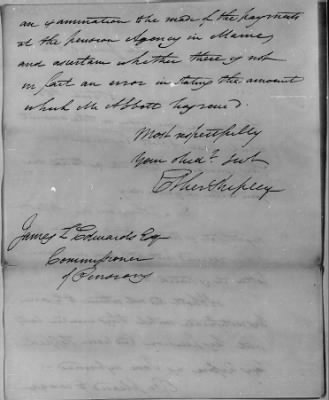 an examination the made of the payments
at the pension Agency in Maine,
and ascertain whether there is not
in fact an error in stating the amount
which Mr Abbott has recd.
Most respectfully
Your Obedt. Servt
Ether Shepley
James L Edwards Esq
Commissioner
of Pensions